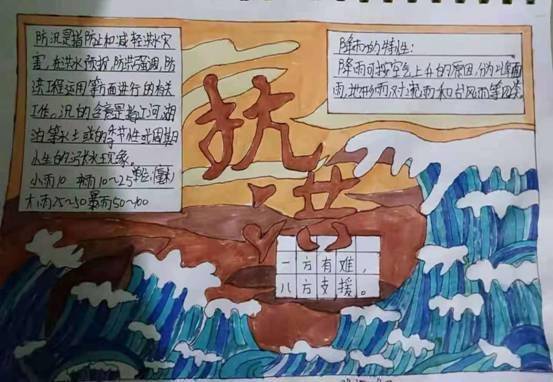 防汛是指防止和减轻洪水灾
害,在洪水预报、防洪强调、防
洪工程运用等方面进行的有关
工作。汛的含意是指江河湖
泊等水土或的季节性或周期
水生的涨水现象。
小雨10 中雨10~25 单位(毫米)
大雨25~50 暴雨50~100
抗
洪
降雨的特性:
降雨可按空气上升的原因,分为锋面
雨、地形雨、对流雨和台风雨等四类
一方有难,
八方支援。